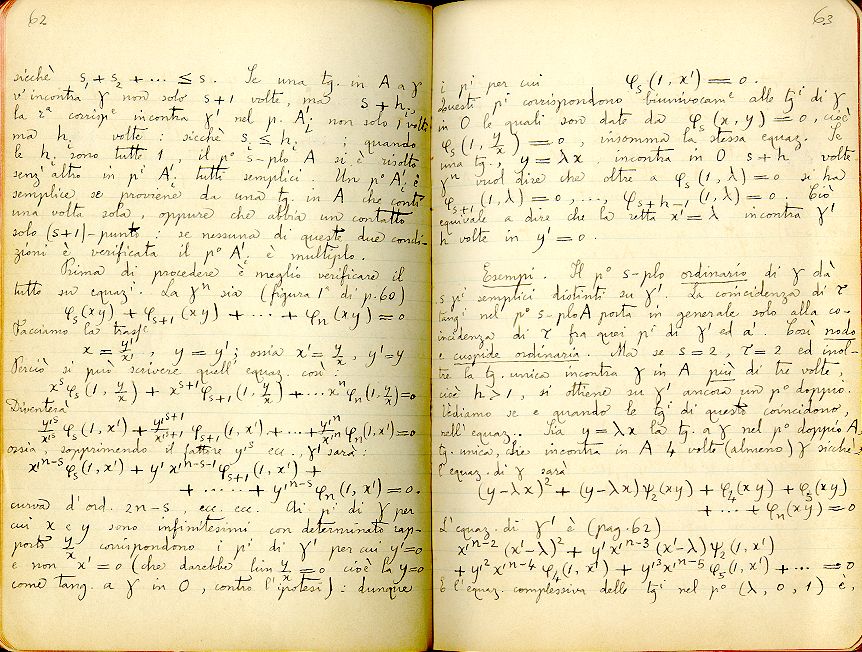 62
sicchè s₁ + s₂ + ... ≤ s. Se una tg. in A a γ
v'incontra γ non solo s+1 volte, ma s + hᵢ
la rᵃ corrispᵉ incontra γ' nel p. A'ᵢ non solo 1 volta
ma hᵢ volte: sicchè sᵢ ≤ hᵢ ; quando
le hᵢ sono tutte 1, il pᵒ s-plo A si è risolto
senz'altro in pⁱ A'ᵢ tutti semplici. Un pᵒ A'ᵢ è
semplice se proviene da una tg. in A che conti
una volta sola, oppure che abbia un contatto
solo (s+1)-punto: se nessuna di queste due condi-
zioni è verificata il pᵒ A'ᵢ è multiplo.
Prima di procedere è meglio verificare il
tutto su equazⁱ. La γⁿ sia (figura 1ᵃ di p. 60)
φₛ(xy) + φₛ₊₁(xy) + ... + φₙ(xy) = 0
Facciamo la trasfᵉ
x = y'/x', y = y'; ossia x' = y/x, y' = y
Perciò si può scrivere quell'equaz. così:
xˢφₛ(1, y/x) + xˢ⁺¹φₛ₊₁(1, y/x) + ... xⁿφₙ(1, y/x) = 0
Diventerà
y'ˢ/x'ˢ φₛ(1, x') + y'ˢ⁺¹/x'ˢ⁺¹ φₛ₊₁(1, x') + ... + y'ⁿ/x'ⁿ φₙ(1, x') = 0
ossia, sopprimendo il fattore y'ˢ ecc., γ' sarà:
x'ⁿ⁻ˢφₛ(1, x') + y'x'ⁿ⁻ˢ⁻¹φₛ₊₁(1, x') +
+ ...... + y'ⁿ⁻ˢφₙ(1, x') = 0.
curva d'ord. 2n-s, ecc. ecc. Ai pⁱ di γ per
cui x e y sono infinitesimi con determinato rap-
porto y/x corrispondono i pⁱ di γ' per cui y' = 0
e non x' = 0 (che darebbe lim y/x = 0 cioè la y = 0
come tang. a γ in O, contro l'ipotesi): dunque
63
i pⁱ per cui φₛ(1, x') = 0.
Questi pⁱ corrispondono biunivocamᵉ alle tgⁱ di γ
in O le quali son date da φₛ(x, y) = 0, cioè
φₛ(1, y/x) = 0, insomma la stessa equaz. Se
una tg., y = λx, incontra in O s+h volte
γⁿ vuol dire che oltre a φₛ(1, λ) = 0 si ha
φₛ₊₁(1, λ) = 0, ..., φₛ₊ₕ₋₁(1, λ) = 0. Ciò
equivale a dire che la retta x' = λ incontra γ'
h volte in y' = 0.
Esempi. Il pᵒ s-plo ordinario di γ dà
s pⁱ semplici distinti su γ'. La coincidenza di τ
tangⁱ nel pᵒ s-plo A porta in generale solo alla co-
incidenza di τ fra quei pⁱ di γ' ed a'. Così nodo
e cuspide ordinaria. Ma se s = 2, τ = 2 ed inol-
tre la tg. unica incontra γ in A più di tre volte,
cioè h > 1, si ottiene su γ' ancora un pᵒ doppio.
Vediamo se e quando le tgⁱ di questo coincidono,
nell'equaz.. Sia y = λx la tg. a γ nel pᵒ doppio A,
tg. unica, che incontra in A 4 volte (almeno) γ sicchè
l'equaz. di γ sarà
(y-λx)² + (y-λx) ψ₂(xy) + φ₄(xy) + φ₅(xy)
+ ... + φₙ(xy) = 0
L'equaz. di γ' è (pag. 62)
x'ⁿ⁻²(x'-λ)² + y'x'ⁿ⁻³(x'-λ)ψ₂(1, x')
+ y'²x'ⁿ⁻⁴φ₄(1, x') + y'³x'ⁿ⁻⁵φ₅(1, x') + ... = 0
E l'equaz. complessiva delle tgⁱ nel pᵒ (λ, 0, 1) è,